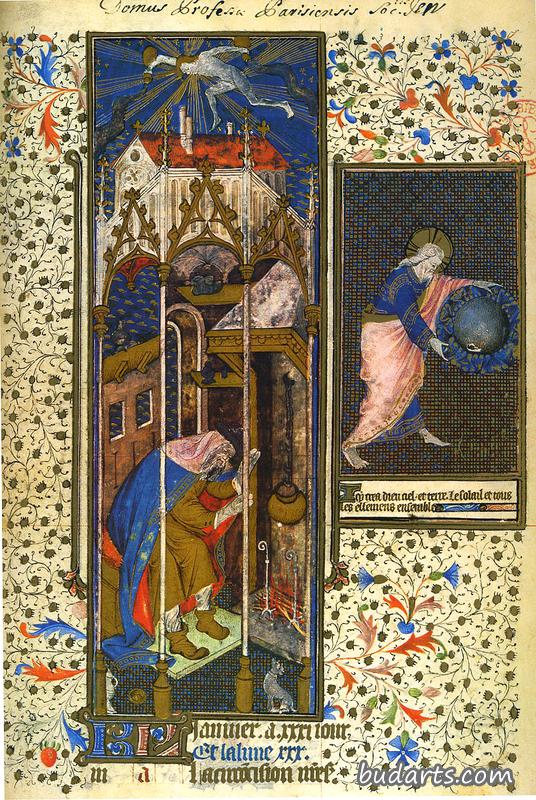 Domus Profess Parisiensis Soc. Jesu
Icy crea dieu ciel et terre. Le soleil et tous
les ellemens ensemble
KL Janvier. a. xxxi iour.
Et la lune xxx.
m a La circoncision nres.
budarts.com